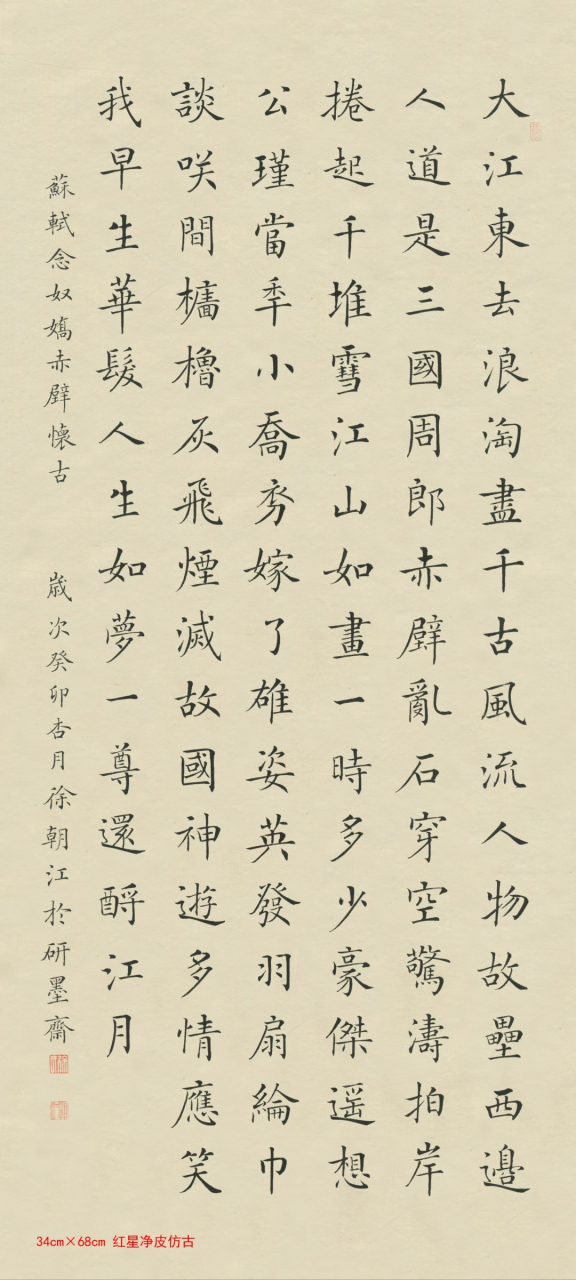 大江東去浪淘盡千古風流人物故壘西邊
人道是三國周郎赤壁亂石穿空驚濤拍岸
捲起千堆雪江山如畫一時多少豪傑遥想
公瑾當秊小喬初嫁了雄姿英發羽扇綸巾
談咲間檣櫓灰飛煙滅故國神遊多情應笑
我早生華髮人生如夢一尊還酹江月
蘇軾念奴嬌赤壁懷古
歲次癸卯杏月徐朝江於研墨齋
34cm×68cm 红星净皮仿古